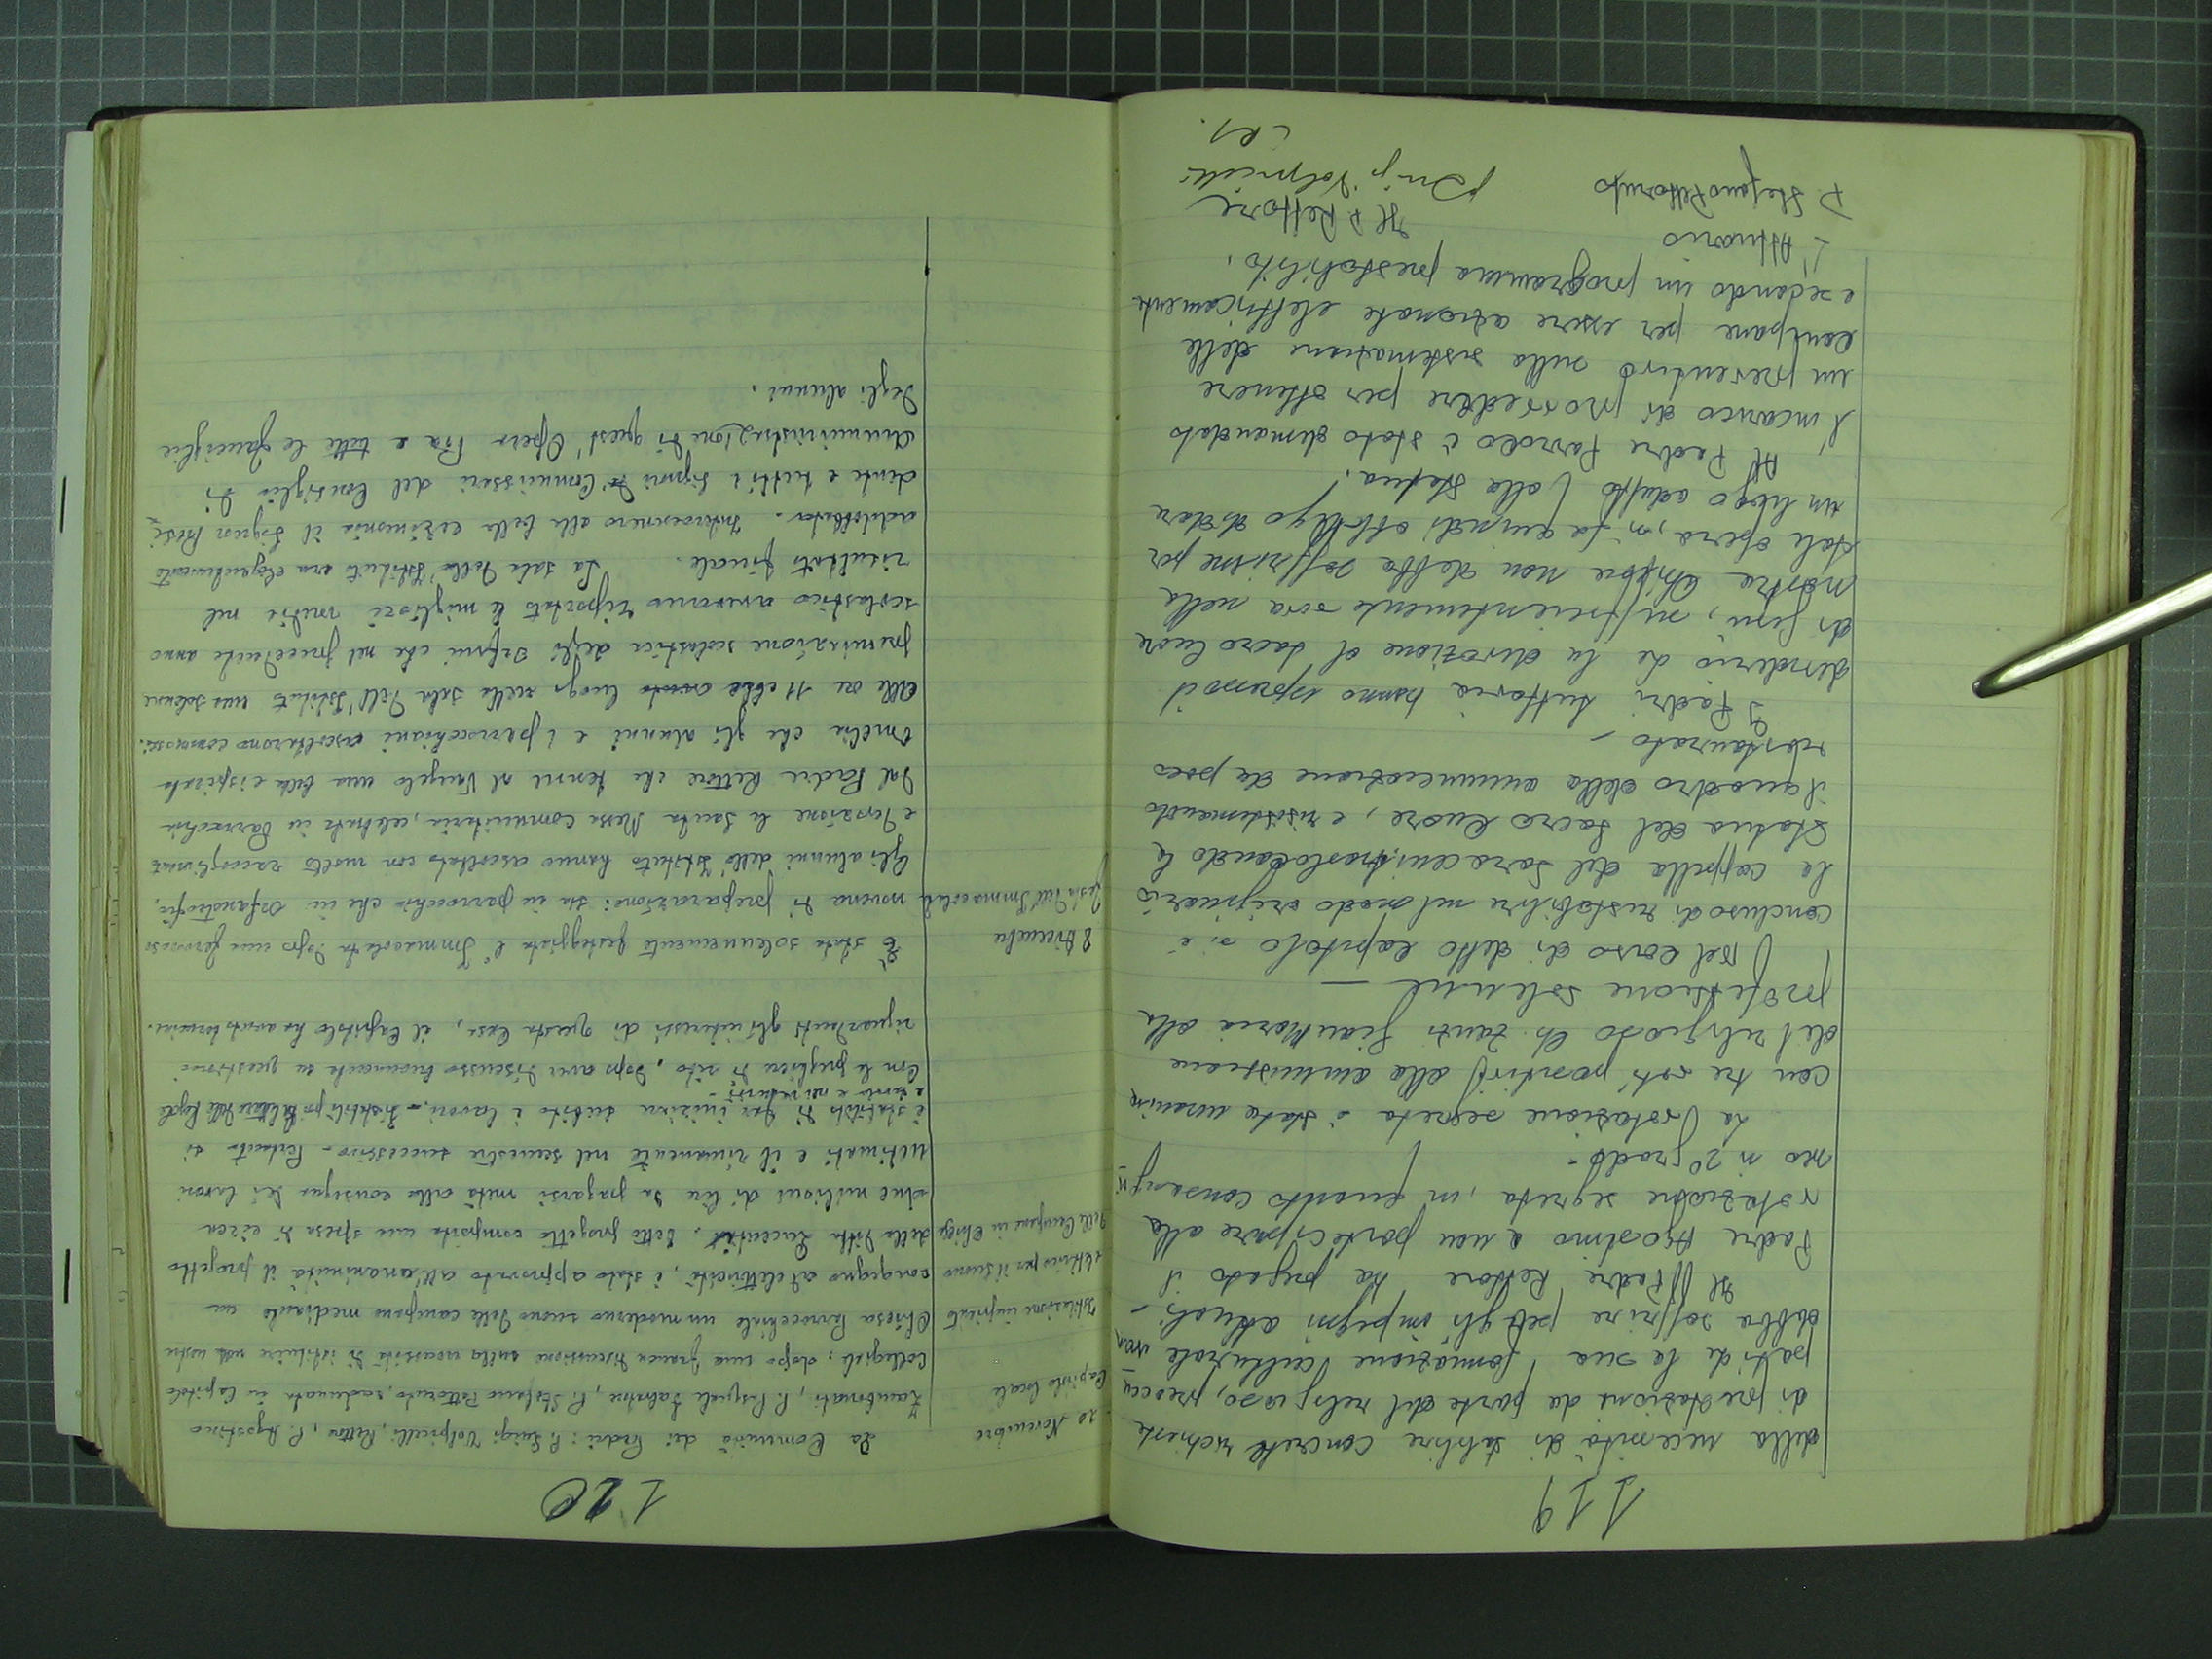 119
della necessità di stabilire concrete richieste
di prestazioni da parte del religioso, preoccu
pati che la sua formazione culturale non
debba soffrire per gli impegni attuali –
Il Padre Rettore ha pregato il
Padre Agostino a non partecipare alla
votazione segreta, in quanto consangui
neo in 2° grado –
La votazione segreta è stata unanime
con tre voti positivi alla ammissione
del religioso Ch. Zanti Gian Maria alla
professione solenne –
Nel corso di detto capitolo si è
concluso di ristabilire nel modo originario
la cappella del Saraceni, traslocando la
statua del Sacro Cuore, e risistemando
il quadro della annunciazione da poco
restaurato –
I Padri tuttavia hanno espresso il
desiderio che la devozione al Sacro Cuore
di Gesù, sufficientemente viva nella
nostra Chiesa non debba soffrirne per
tale opera, si fa quindi obbligo di dare
un luogo adatto alla statua.
Al Padre Parroco è stato demandato
l'incarico di provvedere per ottenere
un preventivo sulla sistemazione delle
campane per essere azionate elettricamente
secondo un programma prestabilito.
L'Attuario
Il P. Rettore
P. Stefano Pettoruto
P. Luigi Volpicelli
CRS.
120
20 Novembre
Capitolo locale
Istallazione impianto
elettrico per il suono
delle Campane in Chiesa
La Comunità dei Padri: P. Luigi Volpicelli, Rettore, P. Agostino
Zambonati, P. Pasquale Salvatore, P. Stefano Pettoruto, radunata in Capitolo
Collegiale; dopo una franca discussione sulla necessità di istituire nella nostra
Chiesa Parrocchiale un moderno suono delle campane mediante un
congegno ad elettricità, è stato approvato all'unanimità il progetto
della Ditta Lucentini. Detto progetto comporta una spesa di circa
due milioni di lire da pagarsi metà alla consegna dei lavori
ultimati e il rimanente nel semestre successivo – Pertanto si
è stabilito di far iniziare subito i lavori. –
Con le preghiere di rito, dopo aver discusso brevemente su questioni
riguardanti gli interessi di questa Casa, il Capitolo ha avuto termine.
8 Dicembre
Festa dell'Immacolata
È stata solennemente festeggiata l'Immacolata dopo una fervorosa
novena di preparazione: sia in parrocchia che in Orfanotrofio.
Gli alunni dello Istituto hanno ascoltato con molto raccoglimento
e devozione la Santa Messa comunitaria, celebrata in Parrocchia
dal Padre Rettore che tenne al Vangelo una bella e ispirata
Omelia che gli alunni e i parrocchiani ascoltarono commossi.
Alle ore 11 ebbe luogo nella sala dell'Istituto una solenne
premiazione scolastica degli alunni che nel precedente anno
scolastico avevano riportato le migliori medie nel
risultato finale. La sala dello Istituto era elegantemente
addobbata. Intervennero alla bella cerimonia il Signor Presi
dente e tutti i Signori Commissari del Consiglio di
Amministrazione di quest'Opera Pia e tutte le famiglie
degli alunni.